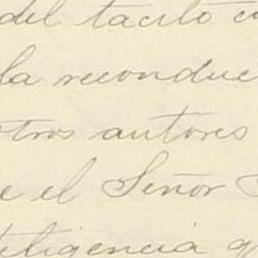 del tacito co
la reconduc
otros autores
e el Señor
teligencia q